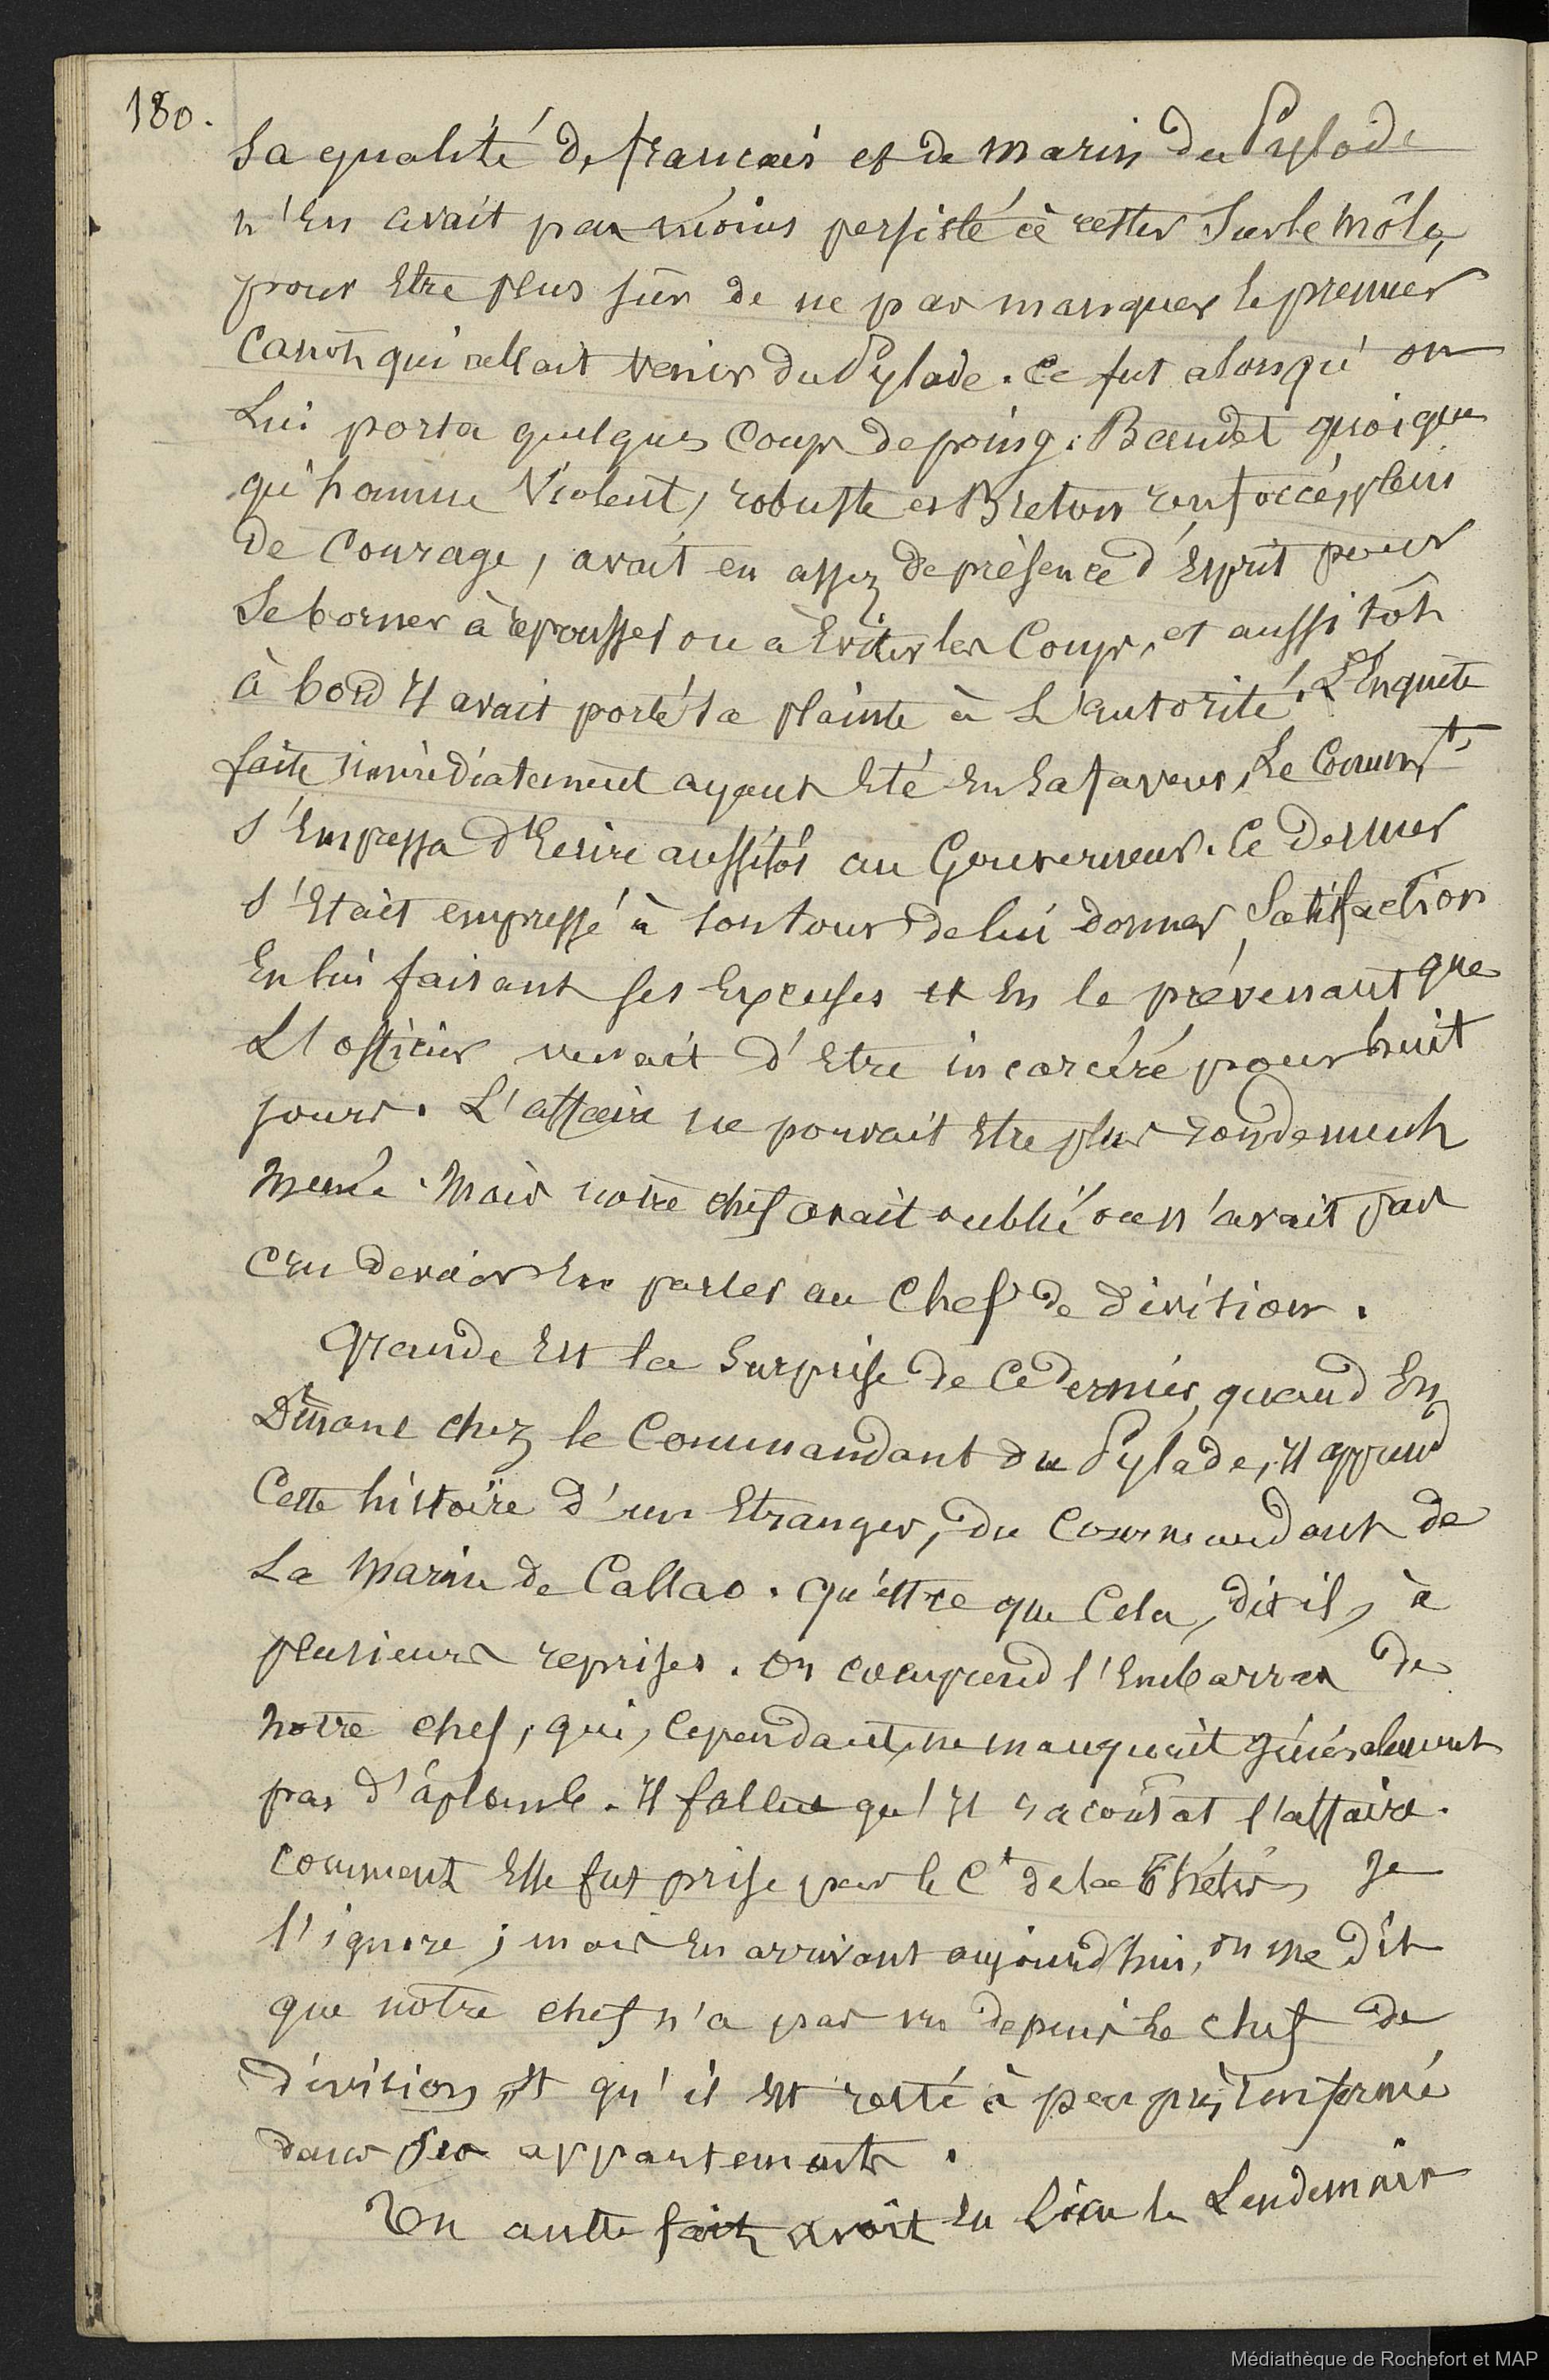 180.
sa qualité de français et de marin du Pylade
n'en avait pas moins persisté à rester sur le môle,
pour être plus sûr de ne pas manquer le premier
canot qui allait venir du Pylade. Ce fut alors qu'on
lui porta quelques coups de poing. Baudet quoique
qu'homme violent, robuste et Breton renforcé, plein
de courage, avait eu assez de présence d'esprit pour
se borner à repousser ou à éviter les coups, et aussitôt
à bord il avait porté sa plainte à l'autorité. L'enquête
faite immédiatement ayant été en sa faveur, le Comm.t
s'empressa d'écrire aussitôt au Gouverneur. Ce dernier
s'était empressé à son tour de lui donner satisfaction
en lui faisant ses excuses et en le prévenant que
l'officier venait d'être incarcéré pour huit
jours. L'affaire ne pouvait être plus rondement
menée. Mais notre chef avait oublié ou n'avait pas
cru devoir en parler au chef de division.
Grande est la surprise de ce dernier, quand en
dînant chez le Commandant du Pylade, il apprend
cette histoire d'un étranger, du commandant de
la marine de Callao. Qu'est-ce que cela, dit-il, à
plusieurs reprises. On comprend l'embarras de
notre chef, qui, cependant, ne manquait généralement
pas d'aplomb. Il fallut qu'il racontât l'affaire.
Comment elle fut prise par le Ct de la Thétis, je
l'ignore ; mais en arrivant aujourd'hui, on me dit
que notre chef n'a pas vu depuis le chef de
division et qu'il est resté à peu près enfermé
dans ses appartements.
Un autre fait avait eu lieu le lendemain
Médiathèque de Rochefort et MAP